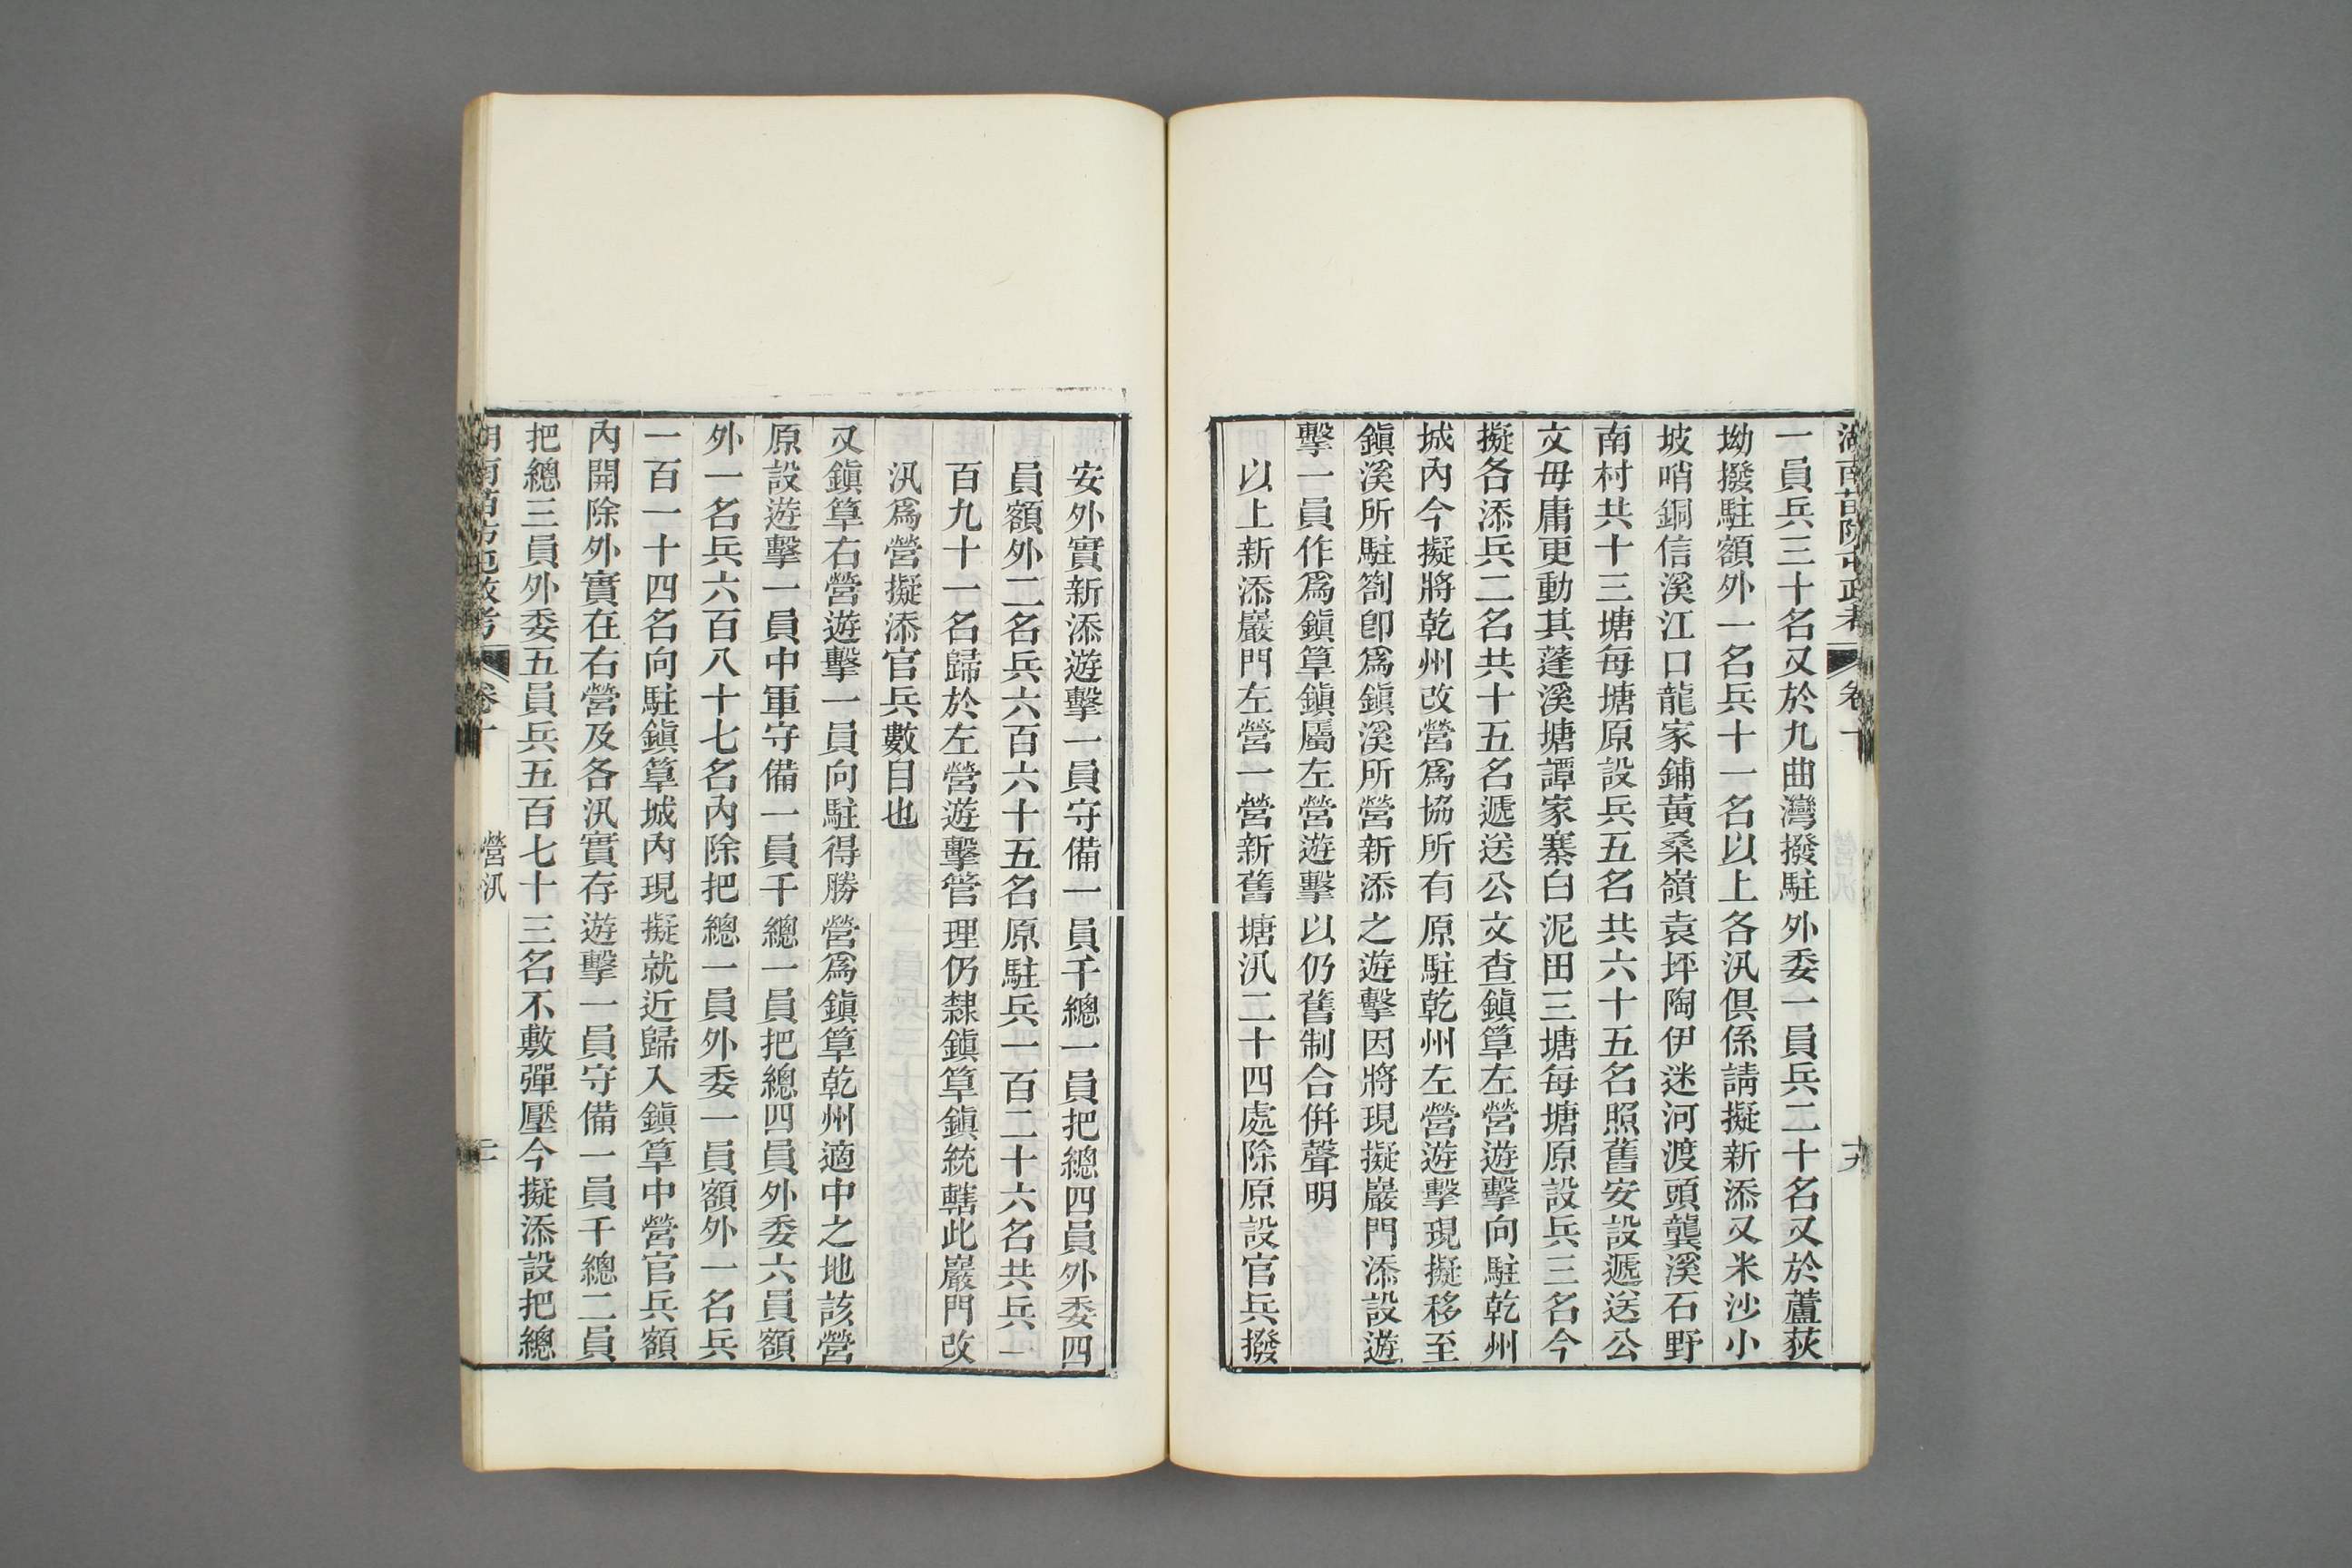 湖南苗防屯政考 卷十 十九
一員兵三十名又於九曲灣撥駐外委一員兵二十名又於蘆荻
坳撥駐額外一名兵十一名以上各汛俱係請擬新添又米沙小
坡哨銅信溪江口龍家鋪黃桑嶺袁坪陶伊迷河渡頭龔溪石野
南村共十三塘每塘原設兵五名共六十五名照舊安設遞送公
文毋庸更動其蓬溪塘譚家寨白泥田三塘每塘原設兵三名今
擬各添兵二名共十五名遞送公文查鎭筸左營遊擊向駐乾州
城內今擬將乾州改營爲協所有原駐乾州左營遊擊現擬移至
鎭溪所駐劄卽爲鎭溪所營新添之遊擊因將現擬巖門添設遊
擊一員作爲鎭筸鎭屬左營遊擊以仍舊制合併聲明
以上新添巖門左營一營新舊塘汛二十四處除原設官兵撥
安外實新添遊擊一員守備一員千總一員把總四員外委四
員額外二名兵六百六十五名原駐兵一百二十六名共兵一
百九十一名歸於左營遊擊管理仍隸鎭筸鎭統轄此巖門改
汛爲營擬添官兵數目也
又鎭筸右營遊擊一員向駐得勝營爲鎭筸乾州適中之地該營
原設遊擊一員中軍守備一員千總一員把總四員外委六員額
外一名兵六百八十七名內除把總一員外委一員額外一名兵
一百一十四名向駐鎭筸城內現擬就近歸入鎭筸中營官兵額
內開除外實在右營及各汛實存遊擊一員守備一員千總二員
把總三員外委五員兵五百七十三名不敷彈壓今擬添設把總
湖南苗防屯政考 卷十 營汛 二